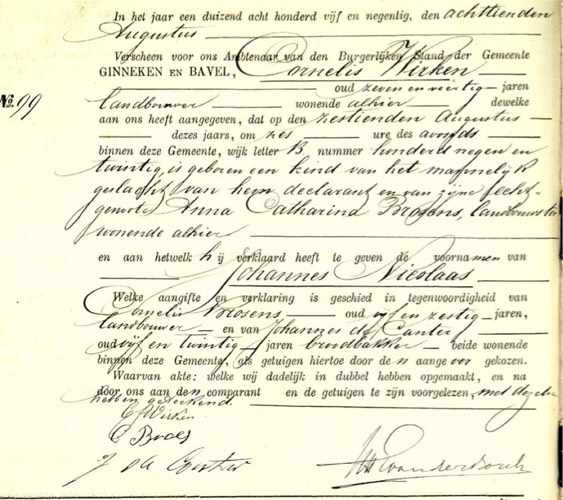 In het jaar een duizend acht honderd vijf en negentig, den achttienden
Augustus
Verscheen voor ons Ambtenaar van den Burgerlijken Stand der Gemeente
GINNEKEN EN BAVEL, Cornelis Wirken
oud zeven en veertig jaren
No. 99 landbouwer wonende alhier dewelke
aan ons heeft aangegeven, dat op den zestienden Augustus
dezes jaars, om zes ure des avonds
binnen deze Gemeente, wijk letter B, nummer honderd negen en
twintig, is geboren een kind van het mannelijk
geslacht van hem declarant en van zijne echt-
genoote Anna Catharina Brosens, landbouwster
wonende alhier
en aan hetwelk hij verklaard heeft te geven de voornamen van
Johannes Nicolaas
Welke aangifte en verklaring is geschied in tegenwoordigheid van
Cornelis Brosens, oud vijf en zestig jaren,
landbouwer en van Johannes de Canter
oud vijf en twintig jaren broodbakker beide wonende
binnen deze Gemeente, als getuigen hiertoe door den aangever gekozen.
Waarvan akte: welke wij dadelijk in dubbel hebben opgemaakt, en na
door ons aan den comparant en de getuigen te zijn voorgelezen, met dezelve
hebben geteekend.
C Wirken
C Bro
J de